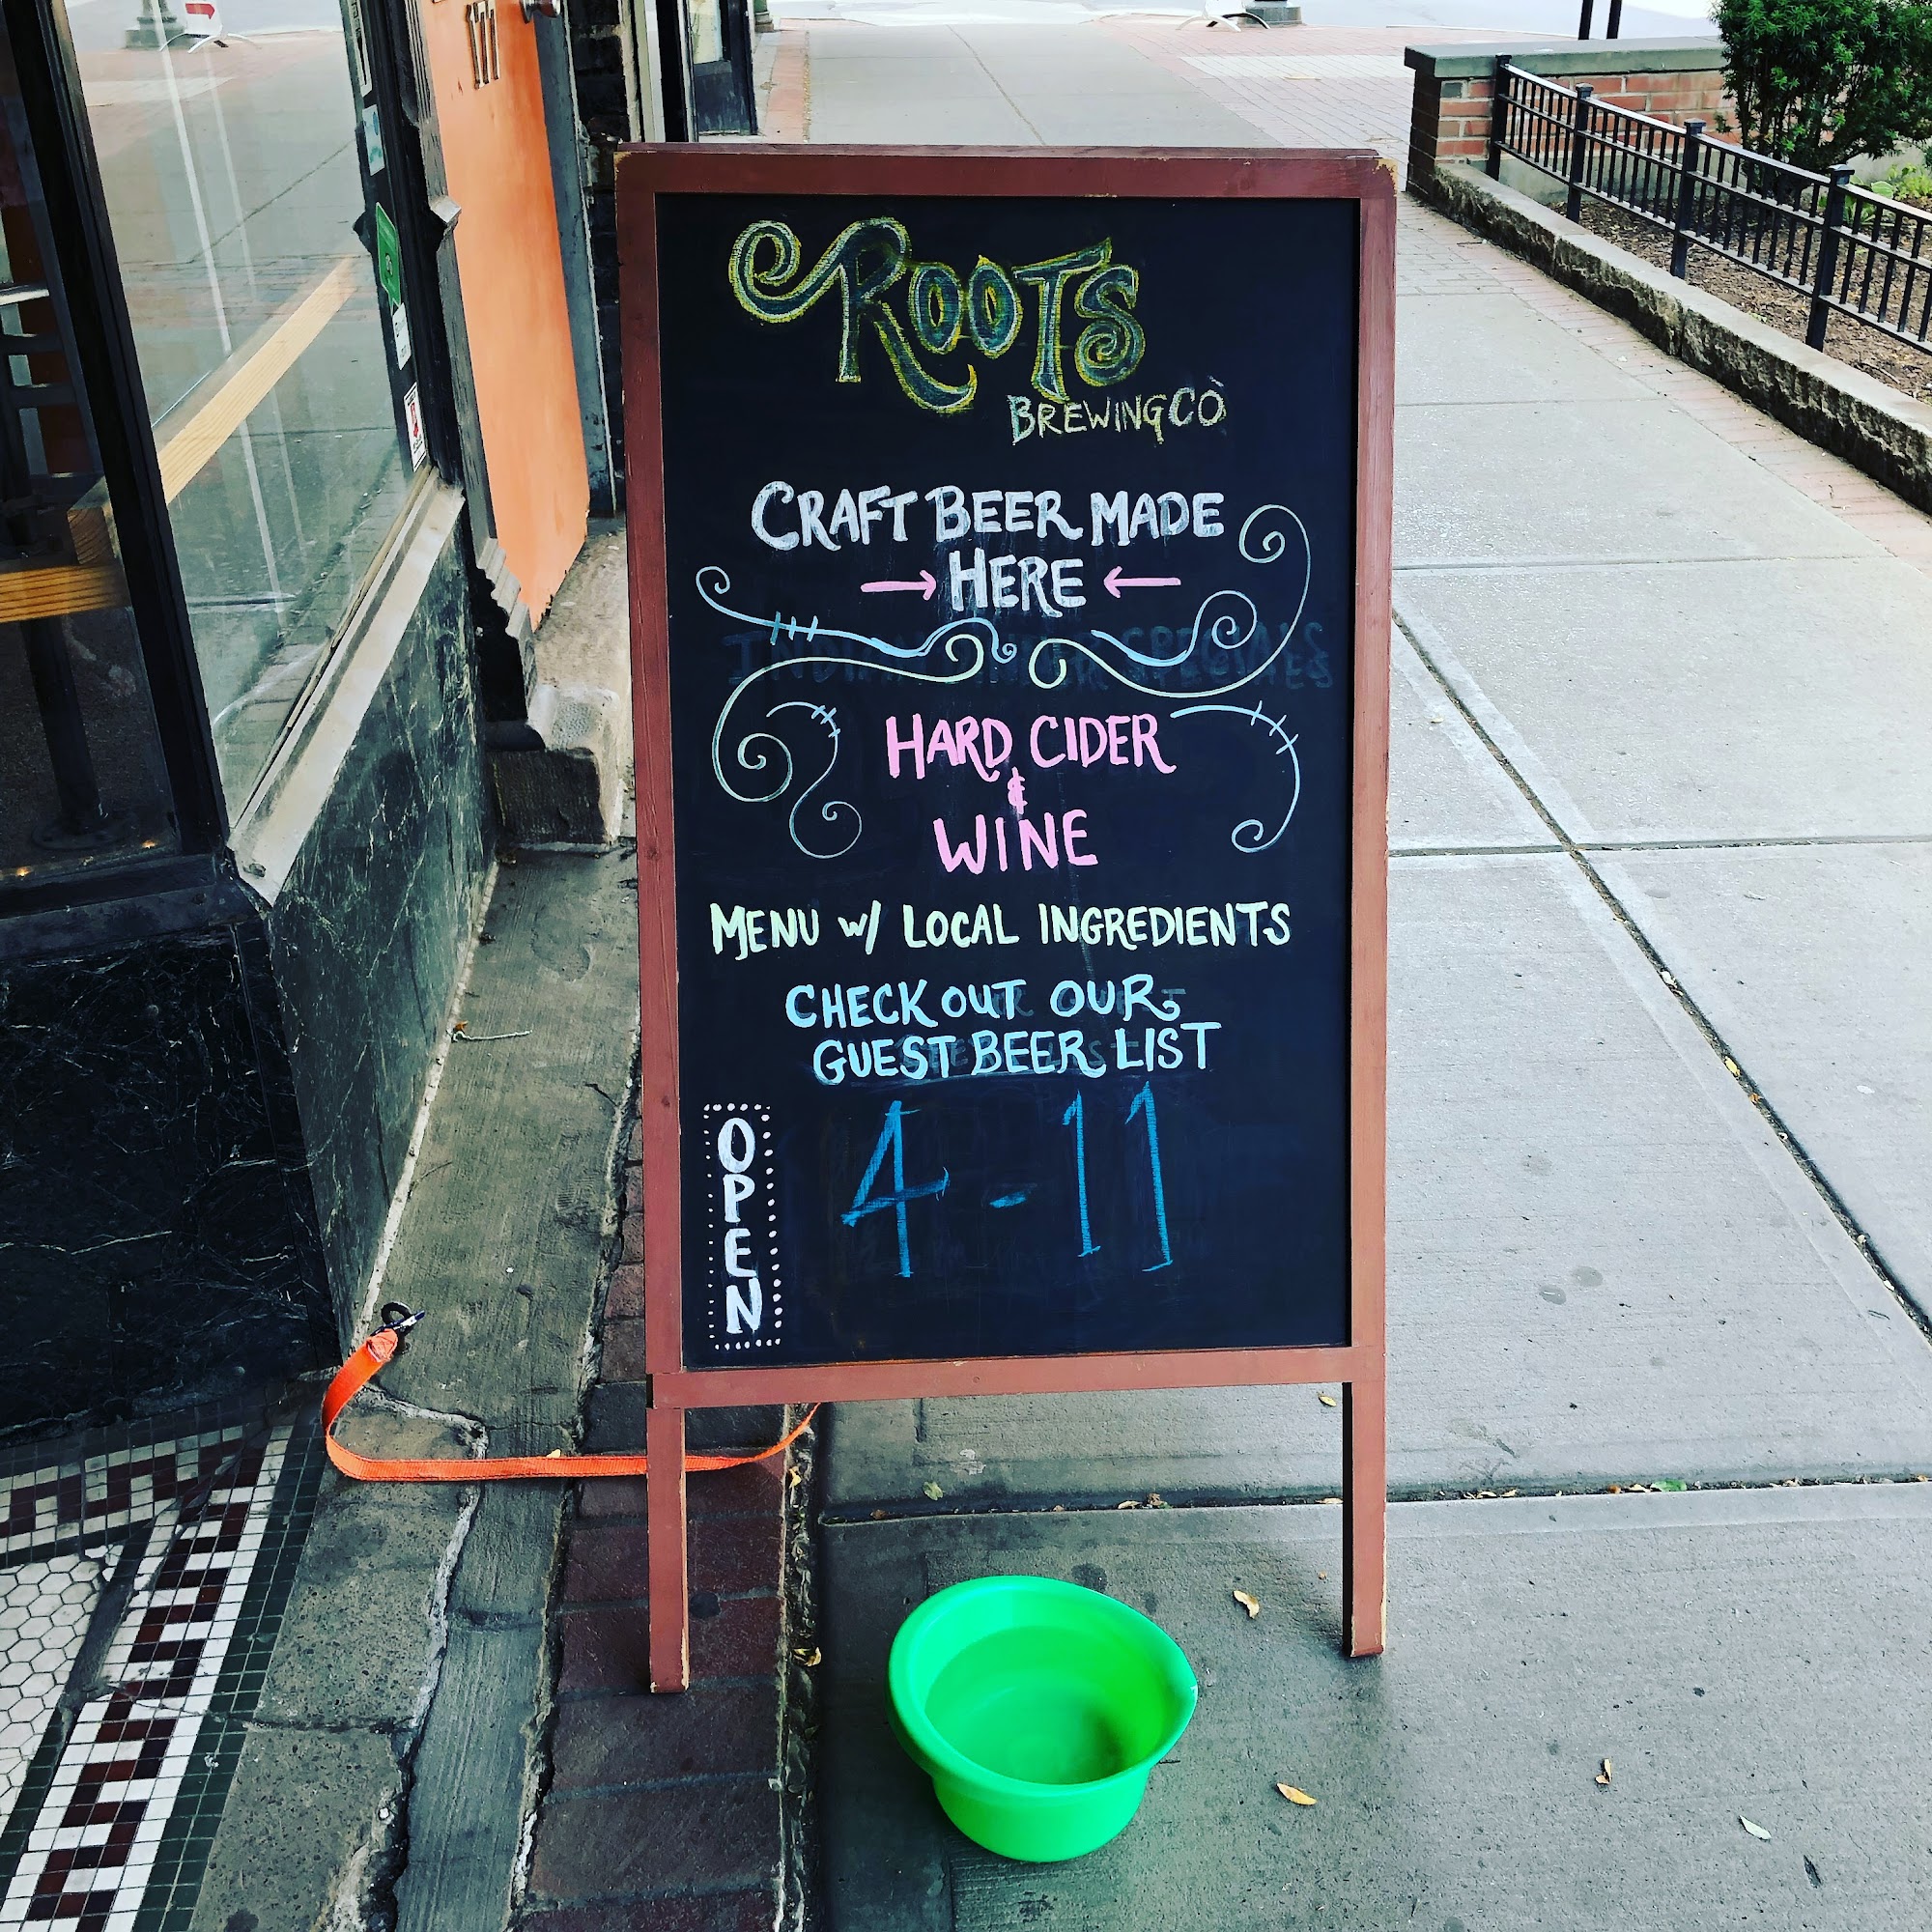 171
ROOTS
BREWING CO
CRAFT BEER MADE
→ HERE ←
HARD CIDER
&
WINE
MENU W/ LOCAL INGREDIENTS
CHECK OUT OUR
GUEST BEER LIST
OPEN
4 - 11